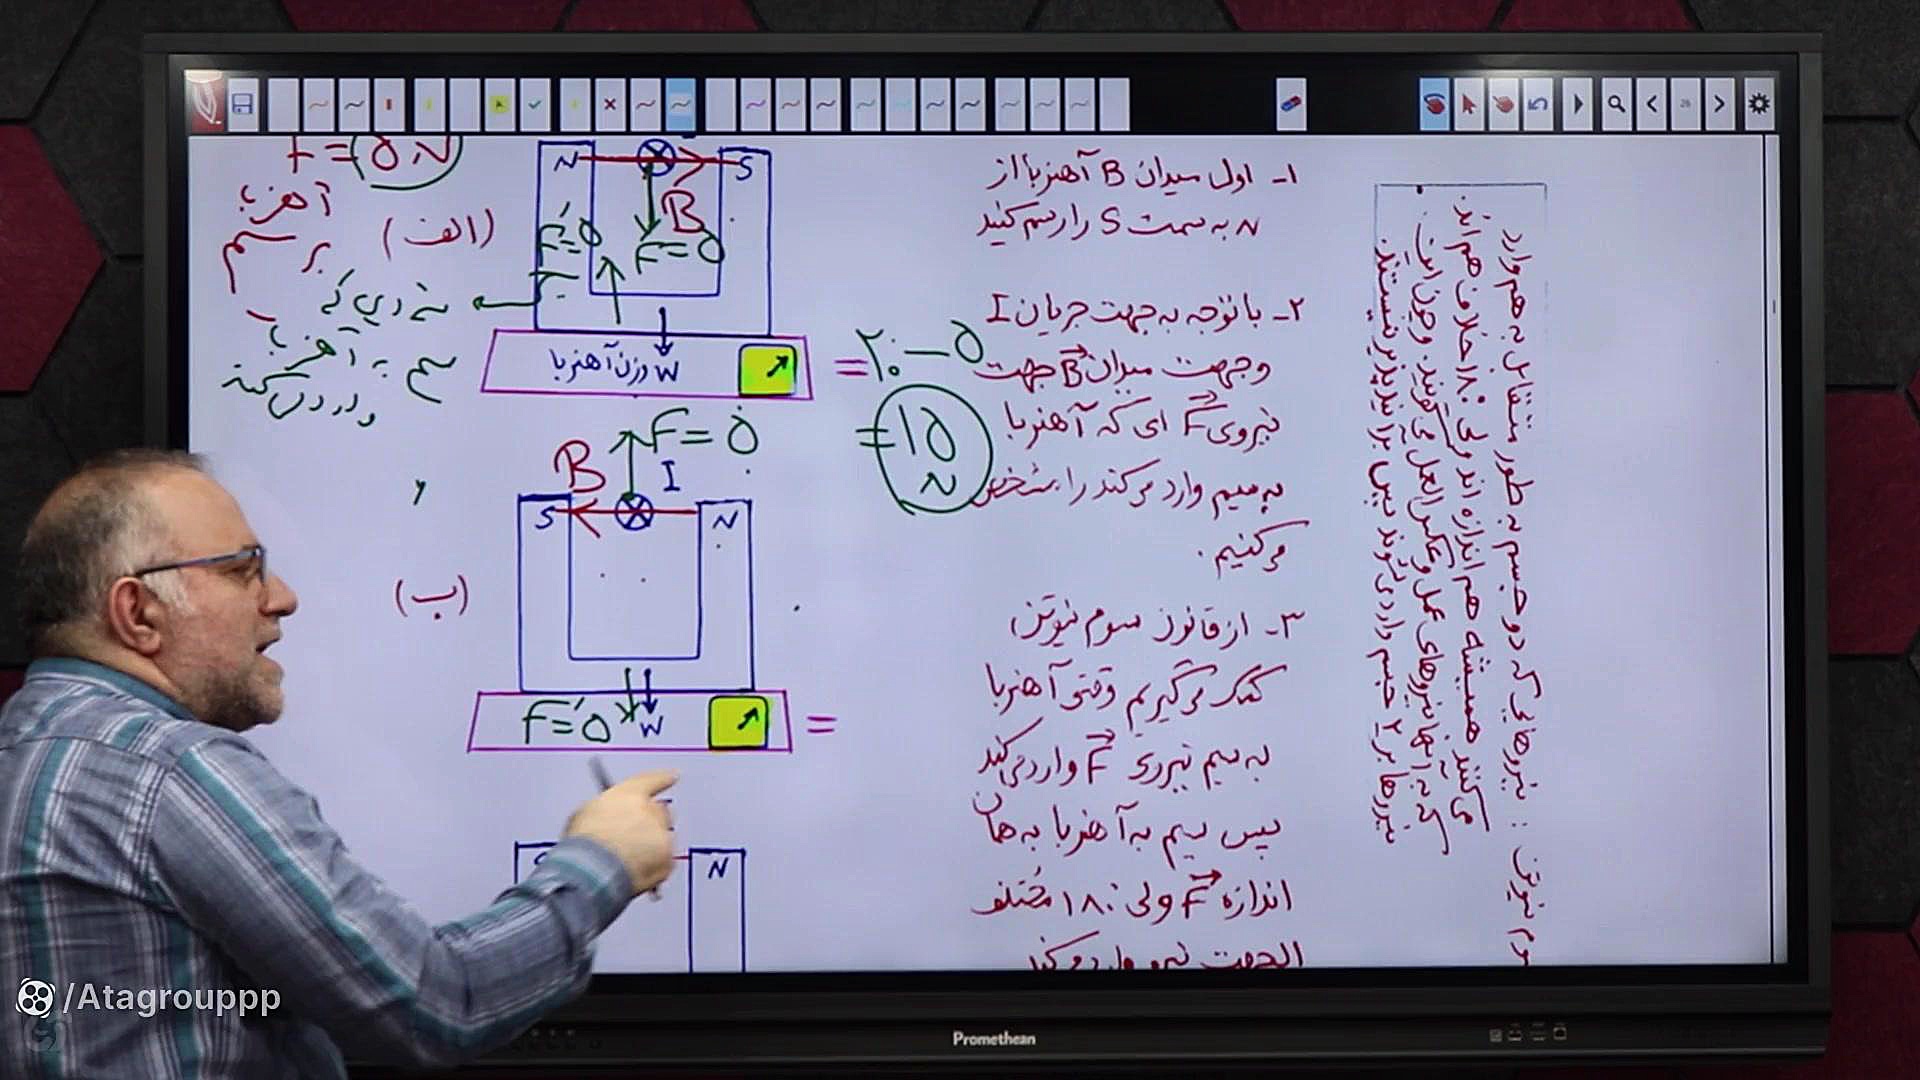 F = ۵ N
آهنربا
بر سیم
(الف)
N
S
B
F = ۵
F' = ۵
W وزن آهنربا
= ۲۰ - ۵
= ۱۵
N
F = ۵
B
I
S
N
(ب)
F' = ۵
W
=
N
۱- اول میدان B آهنربا از
N به سمت S را رسم کنید
۲- با توجه به جهت جریان I
و جهت میدان B جهت
نیروی F ای که آهنربا
به سیم وارد می‌کند را مشخص
می‌کنیم .
۳- از قانون سوم نیوتن
کمک می‌گیریم وقتی آهنربا
به سیم نیروی F وارد می‌کند
پس سیم به آهنربا به همان
اندازه F ولی ۱۸۰ مختلف
الجهت نیرو وارد می‌کند
سوم نیوتن : نیروهایی که دو جسم به طور متقابل به هم وارد
می‌کنند همیشه هم اندازه اند ولی ۱۸۰ خلاف هم اند
که به آنها نیروهای عمل و عکس العمل می‌گویند و چون این
نیروها بر ۲ جسم وارد می‌شوند پس برآیند پذیر نیستند
Promethean
/Atagrouppp